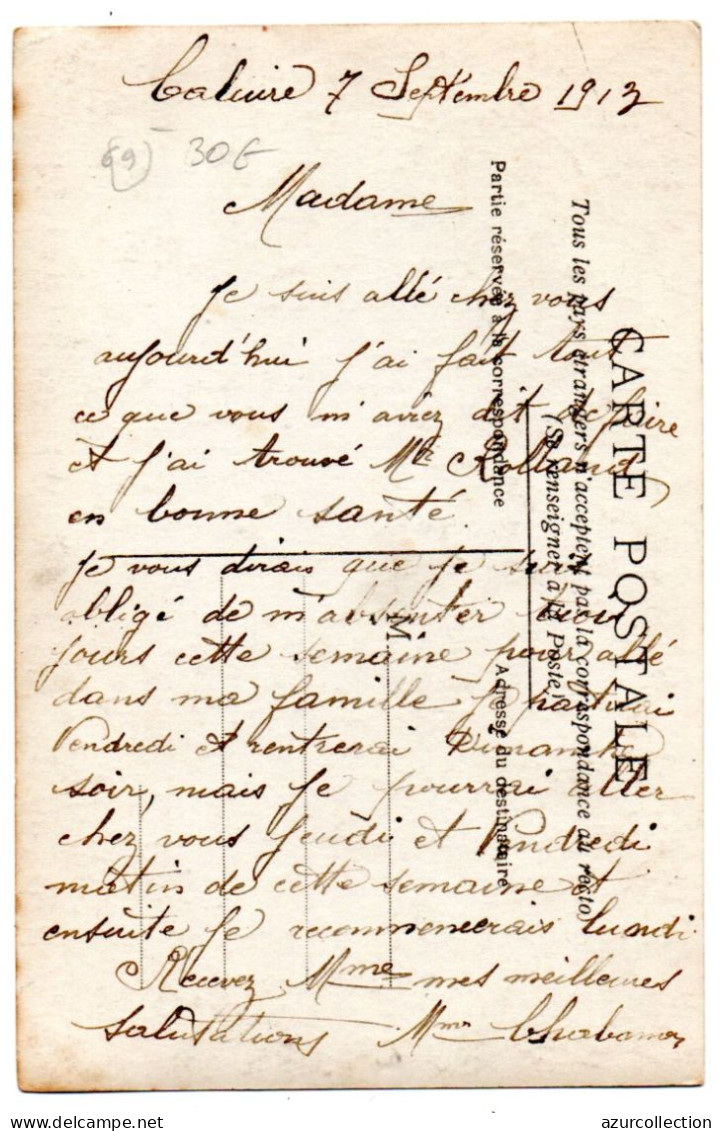 Caluire 7 Septembre 1913
69 30€
Madame
Je suis allé chez vous
aujourd'hui j'ai fait tout
ce que vous m'aviez dit de faire
et j'ai trouvé Mr Rolland
en bonne santé.
Je vous dirais que je suis
obligé de m'absenter
jours cette semaine pour allé
dans ma famille je partirai
Vendredi et rentrerai Dimanche
soir, mais je pourrai aller
chez vous Jeudi et Vendredi
matin de cette semaine et
ensuite je recommencerais lundi.
Recevez Mme mes meilleures
salutations Mme
CARTE POSTALE
Tous les pays étrangers n'acceptent pas la correspondance au recto
(Se renseigner à la Poste)
Partie réservée à la correspondance
Adresse du destinataire
M
azurcollection